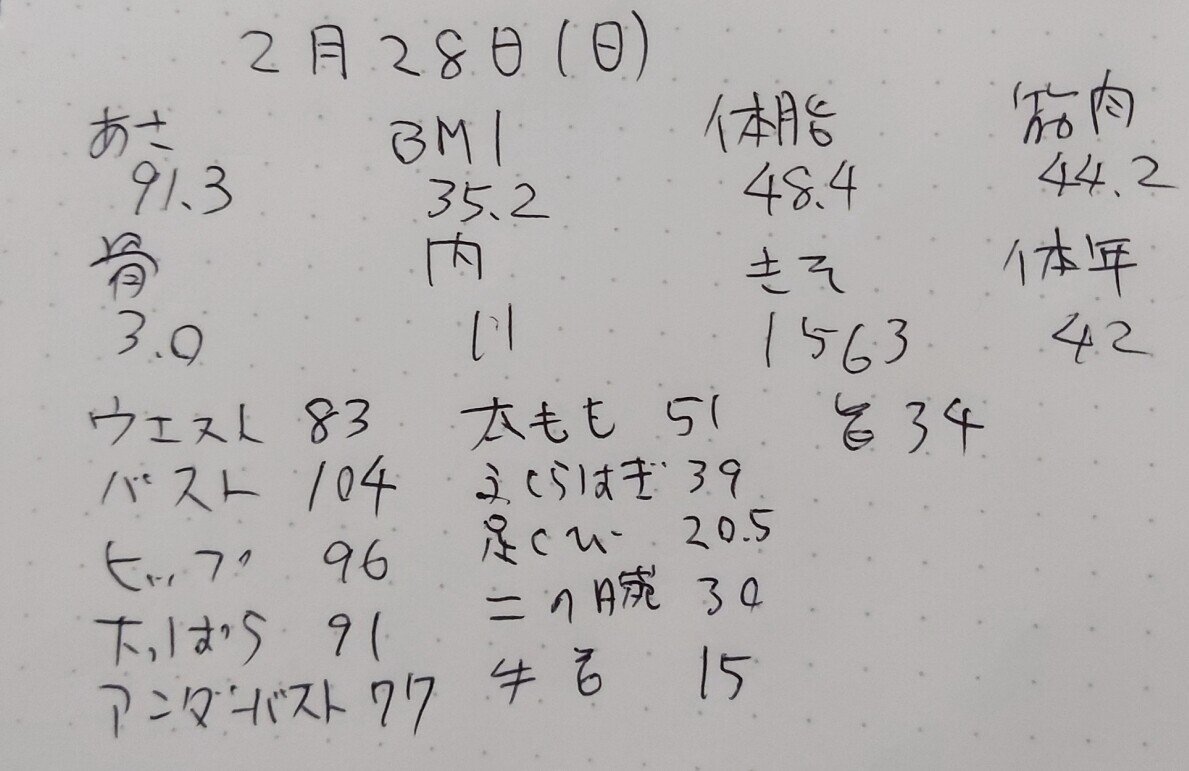 2月28日(日)
あさ BMI 体脂 筋肉
91.3 35.2 48.4 44.2
骨 内 きそ 体年
3.0 11 1563 42
ウエスト 83 太もも 51 34
バスト 104 ふくらはぎ 39
ヒップ 96 足くび 20.5
下っぱら 91 二の腕 30
アンダーバスト 77 手首 15